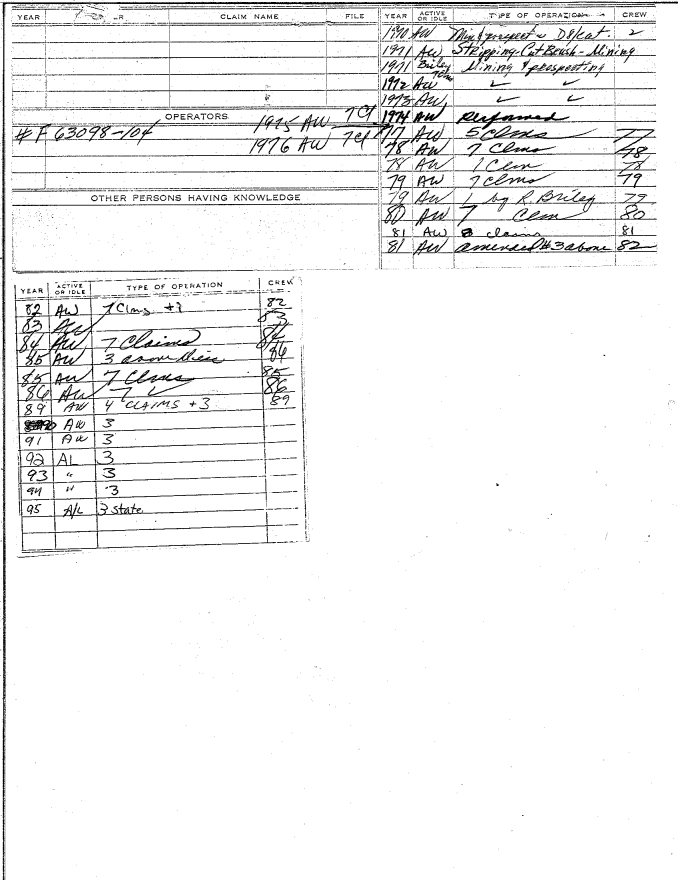 YEAR CLAIM NAME FILE
OPERATORS
1975 AW 7 Cl
# F 63098-104
1976 AW 7 Cl
OTHER PERSONS HAVING KNOWLEDGE
YEAR ACTIVE OR IDLE TYPE OF OPERATION CREW
1970 AW Min & prospect w D8 Kat. 2
1971 AW Stripping-Cut Brush-Mining
1971 Briley Mining & prospecting
1972 AW ✓ ✓
1973 AW ✓ ✓
1974 AW Performed
77 AW 5 Clms 77
78 AW 7 Clms 78
78 AW 1 Clm 78
79 AW 7 Clms 79
79 AW 1 by R. Briley 79
80 AW 7 Clm 80
81 AW 8 claims 81
81 AW amended #3 above 82
YEAR ACTIVE OR IDLE TYPE OF OPERATION CREW
82 AW 7 Clms +3 82
83 AW 83
84 AW 7 Claims 84
85 AW 3 above
85 AW 7 Clms 85
86 AW 7 ✓ 86
89 AW 4 CLAIMS +3 89
90 AW 3
91 AW 3
92 AL 3
93 " 3
94 " 3
95 A/L 3 State